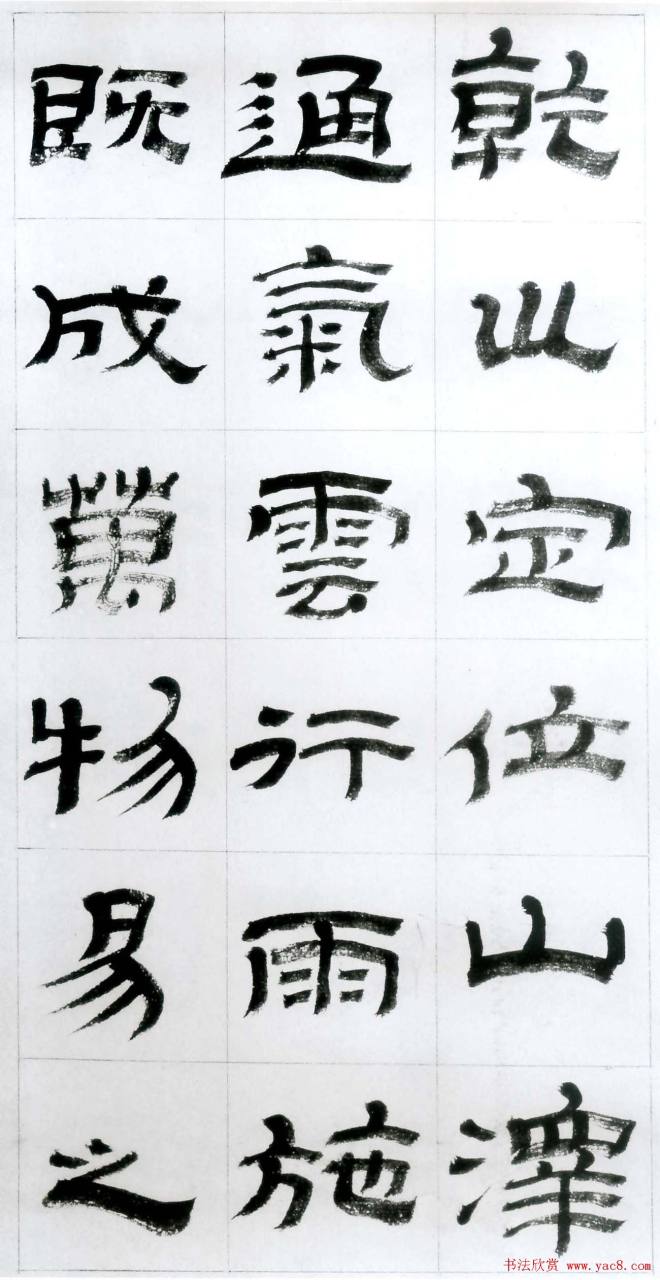 乾巛定位山澤
通氣雲行雨施
既成萬物易之
书法欣赏 www.yac8.com